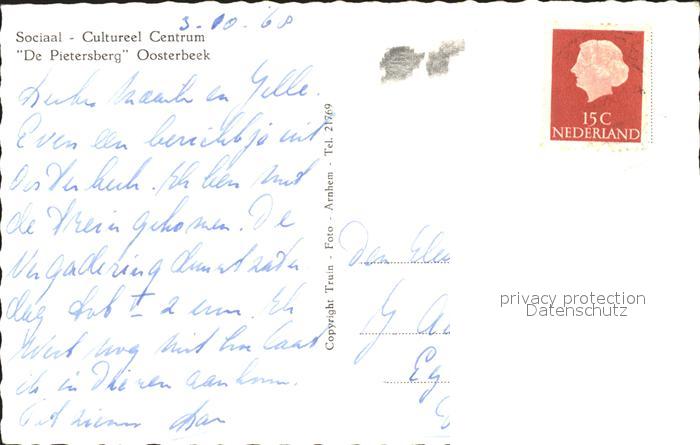 3-10-68
Sociaal - Cultureel Centrum
"De Pietersberg" Oosterbeek
en Jelle.
Even een berichtje uit
Oosterbeek. Ik ben met
de trein gekomen. De
Vergadering duurt zater
dag tot 2 uur. Ik
weet nog niet hoe laat
ik in Dieren aankom.
Tot ziens
Copyright Truin - Foto - Arnhem - Tel. 21769
15 C
NEDERLAND
Den
privacy protection
Datenschutz